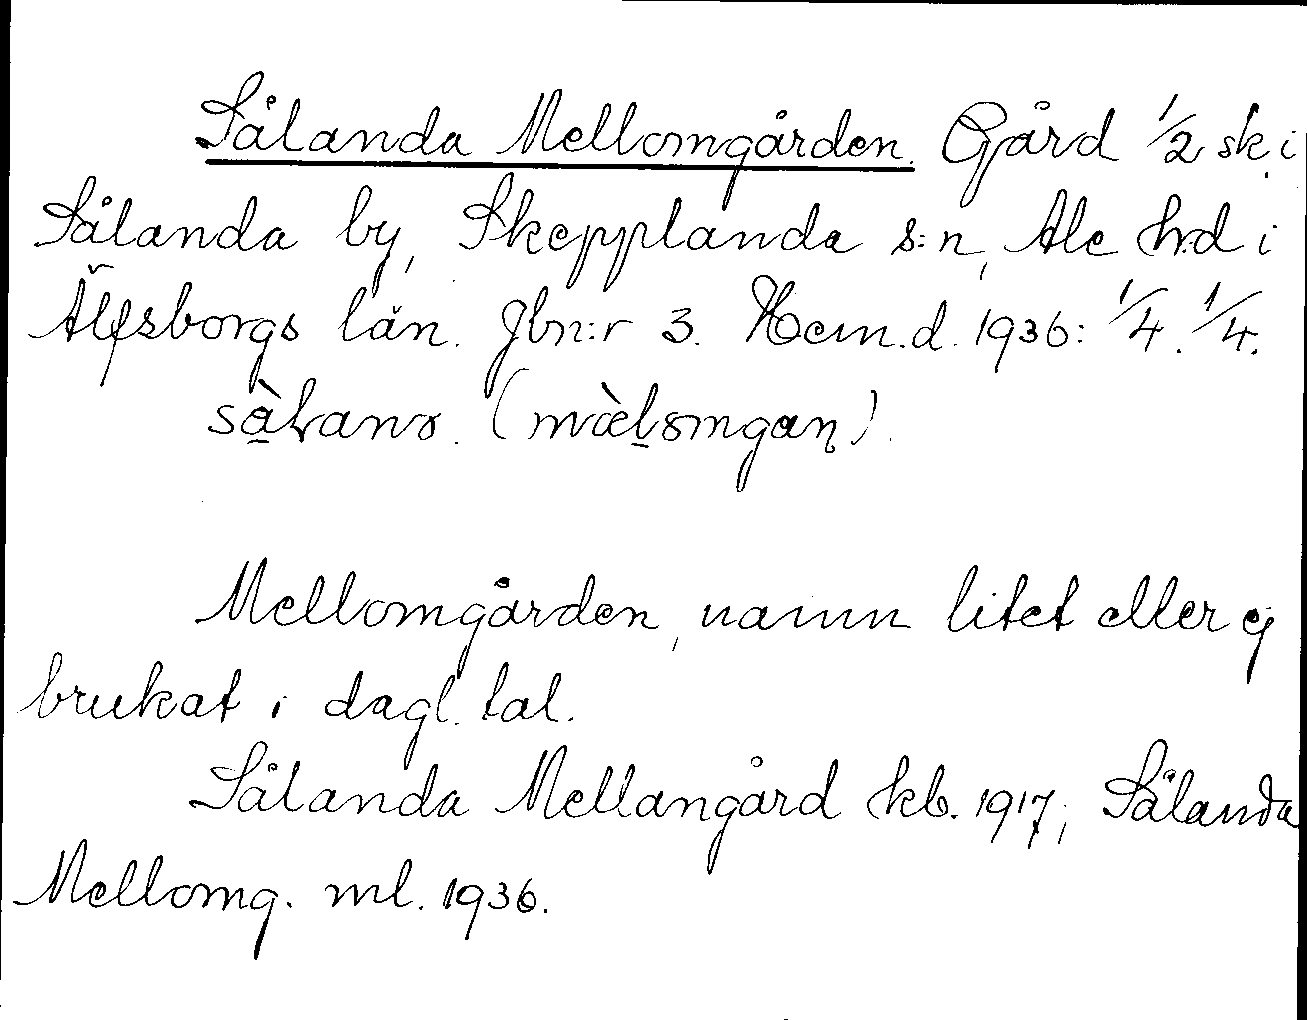 Sålanda Mellomgården. Gård 1/2 sk. i
Sålanda by, Skepplanda s:n, Ale h:d i
Älfsborgs län. Jbn:r 3. Hem.d. 1936: 1/4. 1/4.
Mellomgården, namn litet eller ej
brukat i dagl. tal.
Sålanda Mellangård kb. 1917; Sålanda
Mellomg. ml. 1936.